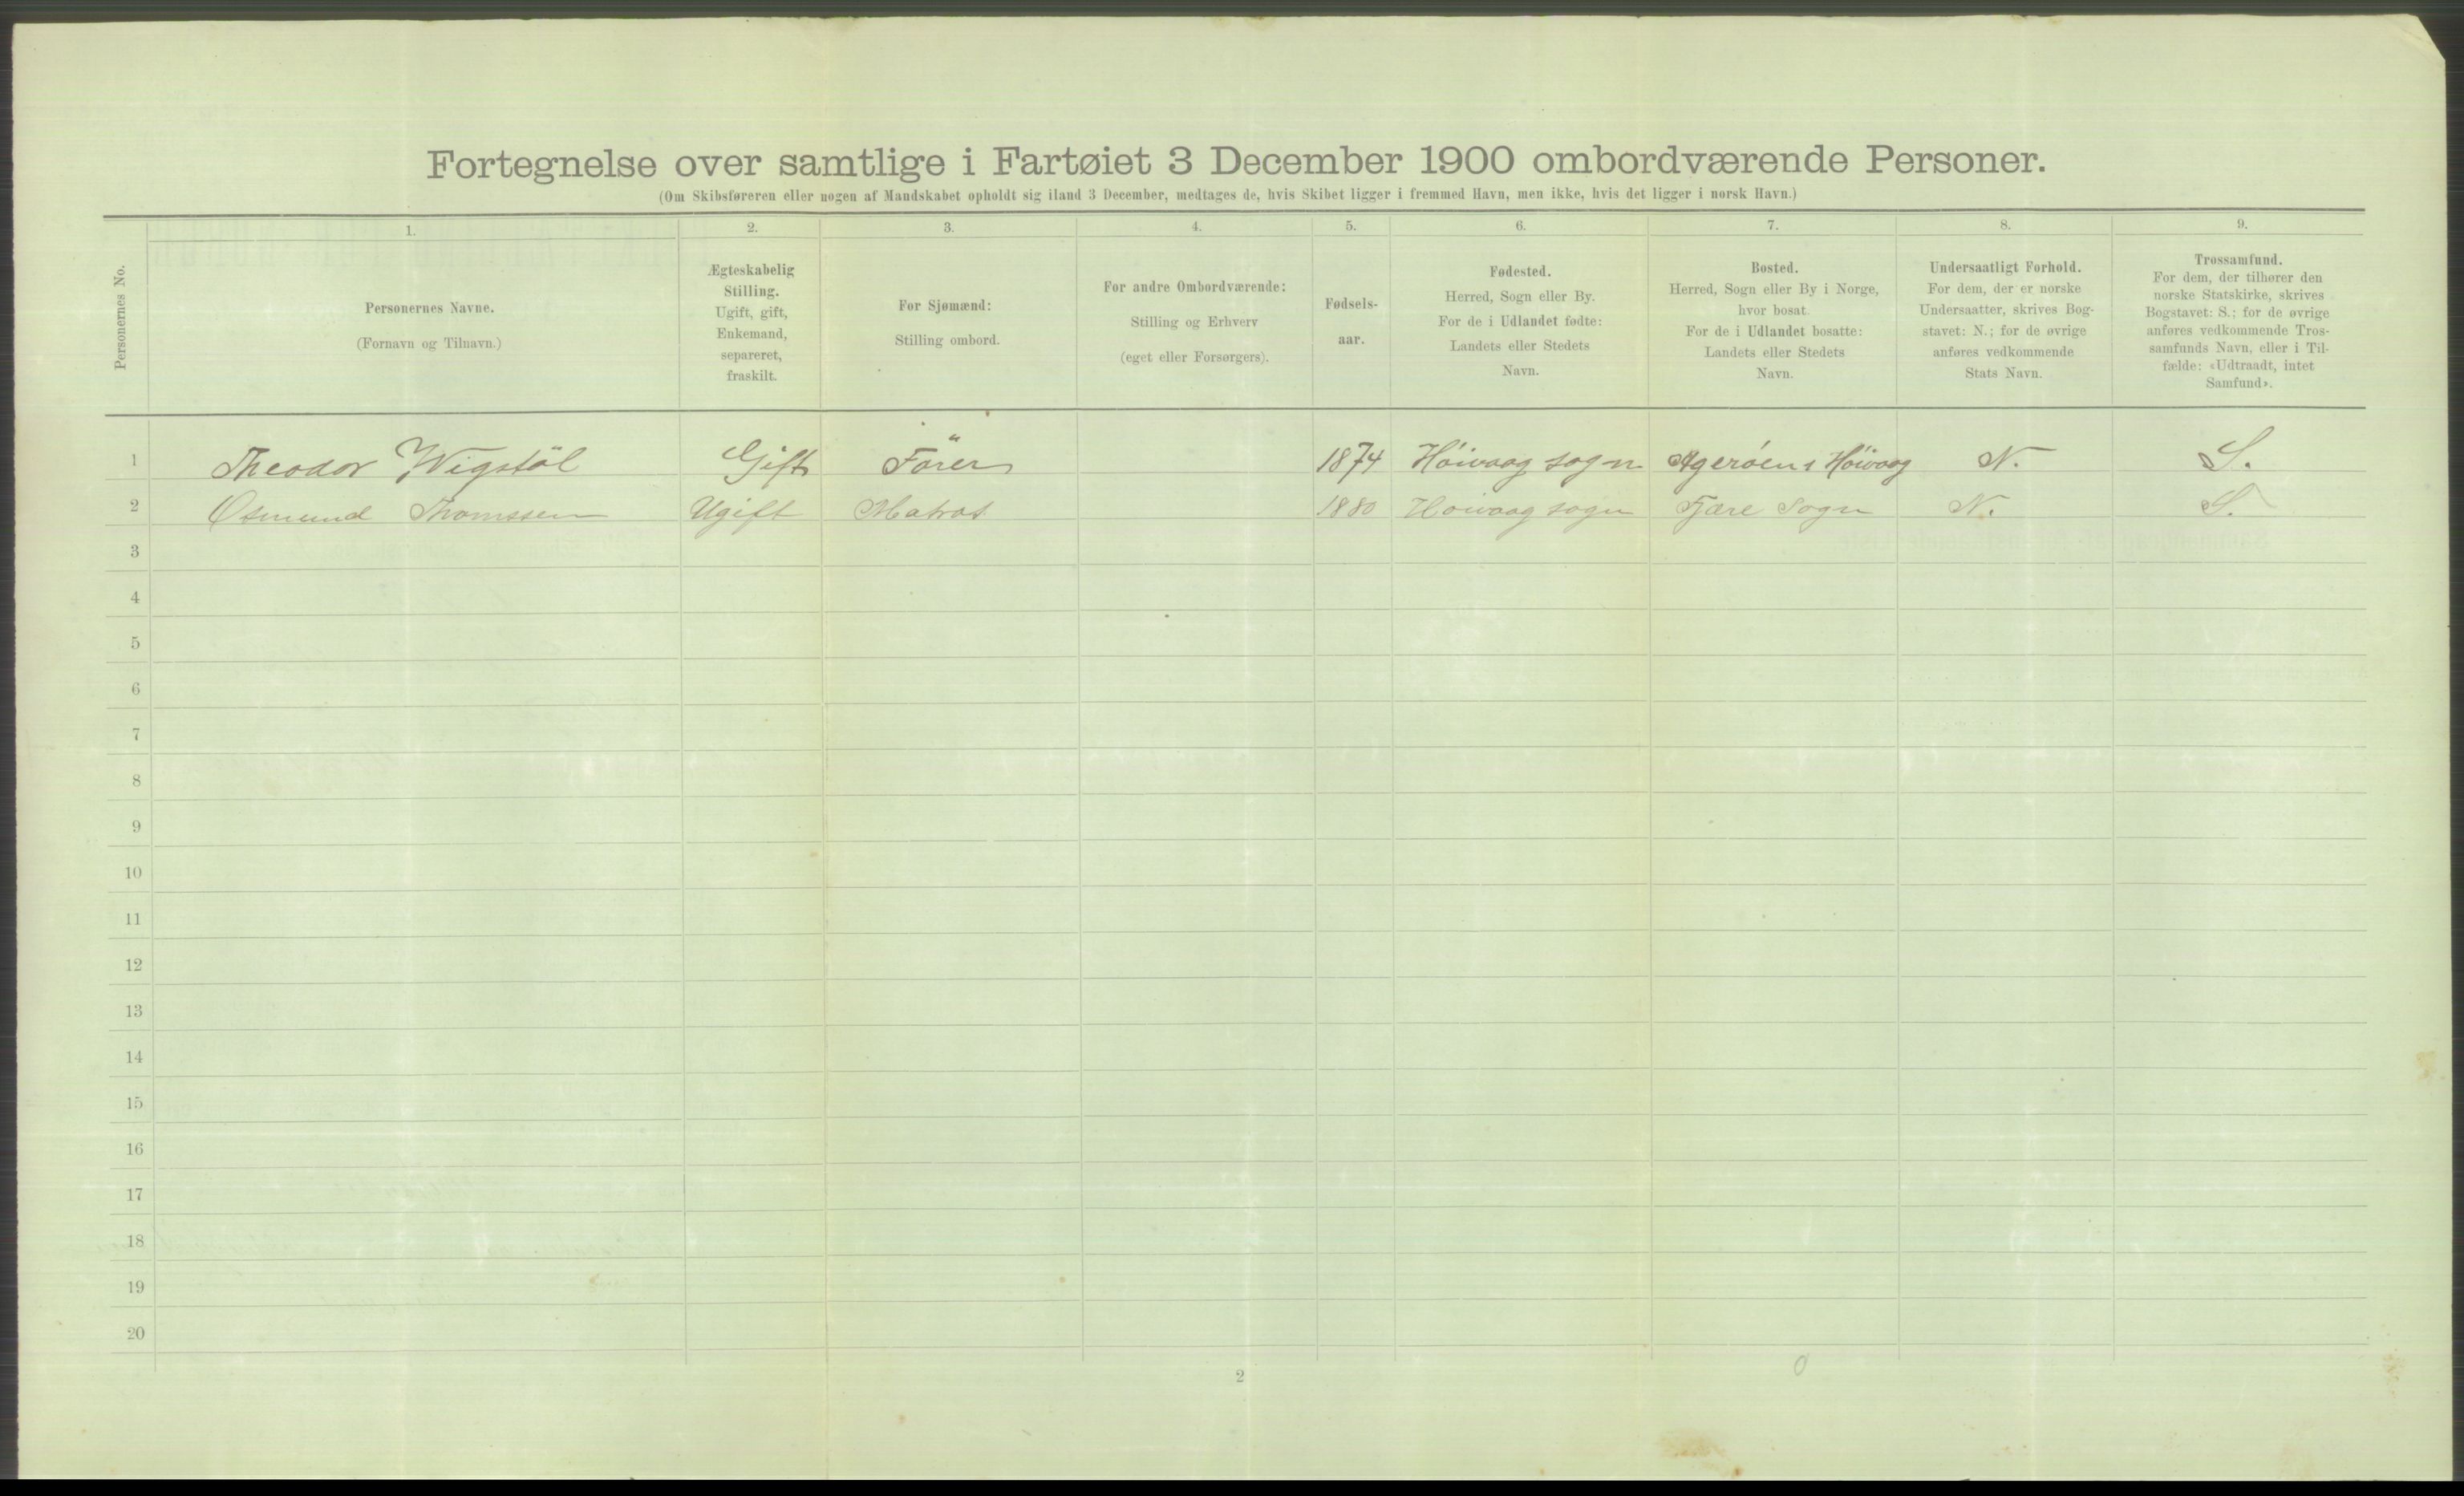 Fortegnelse over samtlige i Fartøiet 3 December 1900 ombordværende Personer.
(Om Skibsføreren eller nogen af Mandskabet opholdt sig iland 3 December, medtages de, hvis Skibet ligger i fremmed Havn, men ikke, hvis det ligger i norsk Havn.)
Personernes No.
1.
Personernes Navne.
(Fornavn og Tilnavn.)
2.
Ægteskabelig
Stilling.
Ugift, gift,
Enkemand,
separeret,
fraskilt.
3.
For Sjømænd:
Stilling ombord.
4.
For andre Ombordværende:
Stilling og Erhverv
(eget eller Forsørgers).
5.
Fødsels-
aar.
6.
Fødested.
Herred, Sogn eller By.
For de i Udlandet fødte:
Landets eller Stedets
Navn.
7.
Bosted.
Herred, Sogn eller By i Norge,
hvor bosat.
For de i Udlandet bosatte:
Landets eller Stedets
Navn.
8.
Undersaatligt Forhold.
For dem, der er norske
Undersaatter, skrives Bog-
stavet: N.; for de øvrige
anføres vedkommende
Stats Navn.
9.
Trossamfund.
For dem, der tilhører den
norske Statskirke, skrives
Bogstavet: S.; for de øvrige
anføres vedkommende Tros-
samfunds Navn, eller i Til-
fælde: «Udtraadt, intet
Samfund».
1 Theodor Wigstöl Gift Förer 1874 Höivaag sogn Agerøen i Höivaag N. S.
2 Osmund Thomssen Ugift Matros 1880 Höivaag sogn Fjære Sogn N. S.
3
4
5
6
7
8
9
10
11
12
13
14
15
16
17
18
19
20
2
0